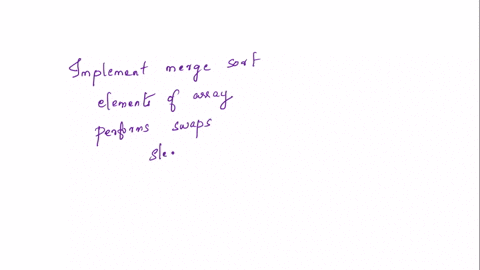 Implement merge sort
elements of array
performs swaps